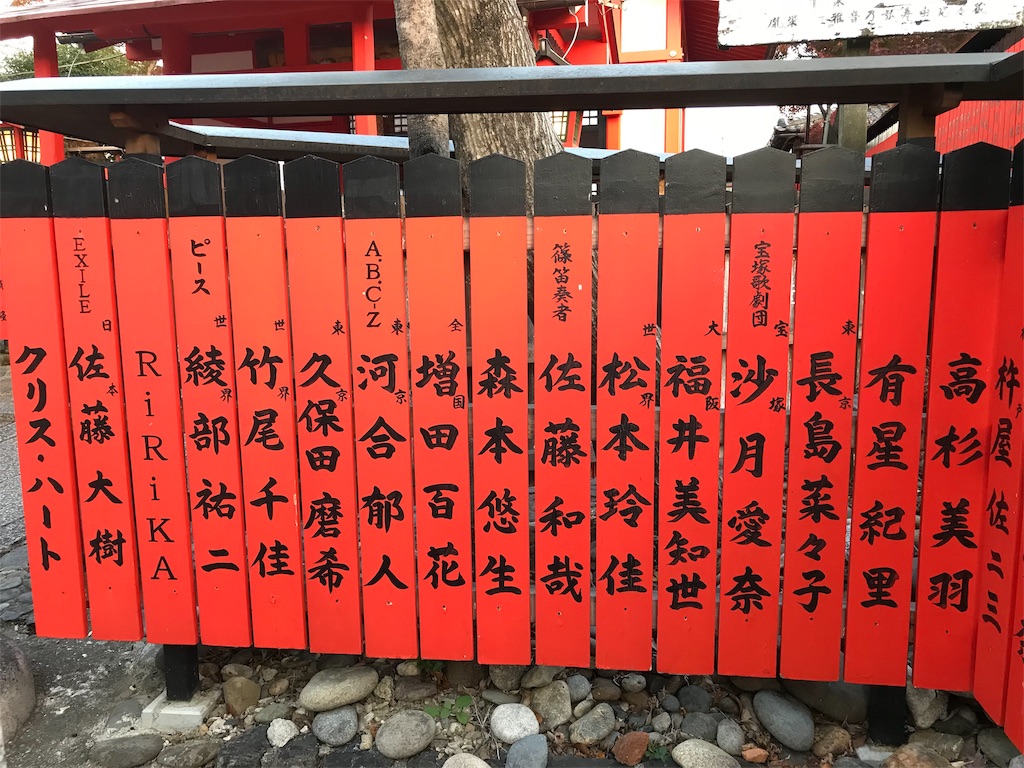 クリス・ハート
EXILE
日本
佐藤大樹
RiRiKA
ピース
世界
綾部祐二
世界
竹尾千佳
東京
久保田磨希
A.B.C-Z
東京
河合郁人
全国
増田百花
森本悠生
篠笛奏者
佐藤和哉
世界
松本玲佳
大阪
福井美知世
宝塚歌劇団
宝塚
沙月愛奈
東京
長島菜々子
有星紀里
高杉美羽
杵屋佐二三